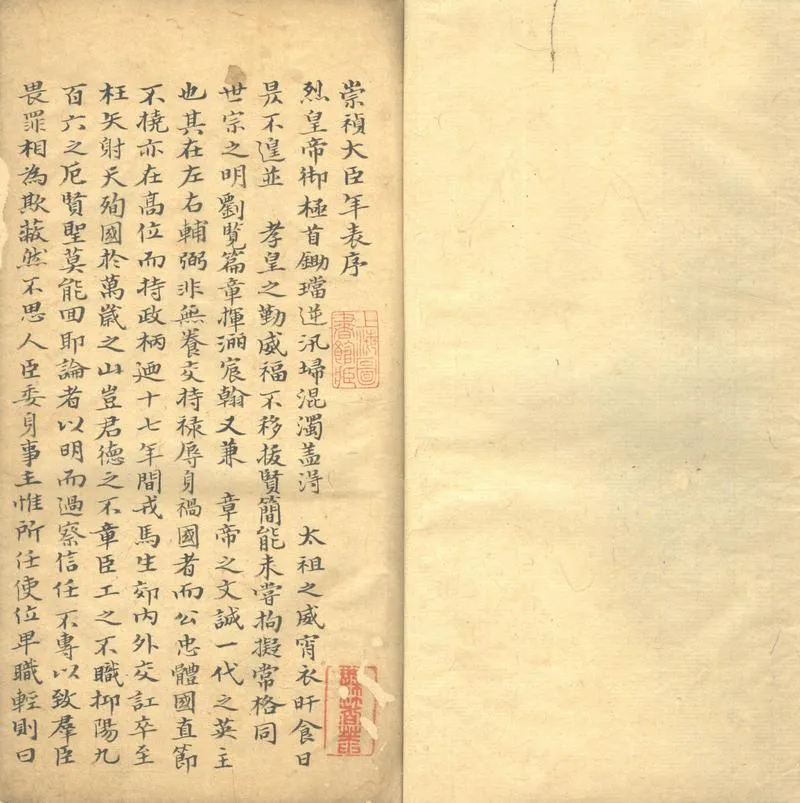 崇禎大臣年表序
烈皇帝御極首鋤璫逆汛埽混濁蓋淂 太祖之威宵衣旰食日
昃不遑並 孝皇之勤威福不移拔賢簡能未嘗拘擬常格同
世宗之明劉覧篇章揮洒宸翰又兼 章帝之文誠一代之英主
也其在左右輔弼非無養交持禄辱身禍國者而公忠體國直節
不撓亦在高位而持政柄廼十七年間戎馬生郊内外交訌卒至
枉矢射天殉國於萬歲之山豈君德之不章臣工之不職抑陽九
百六之厄賢聖莫能回耶論者以明而過察信任不專以致羣臣
畏罪相為欺蔽然不思人臣委身事主惟所任使位卑職輕則曰
上海圖
書館藏